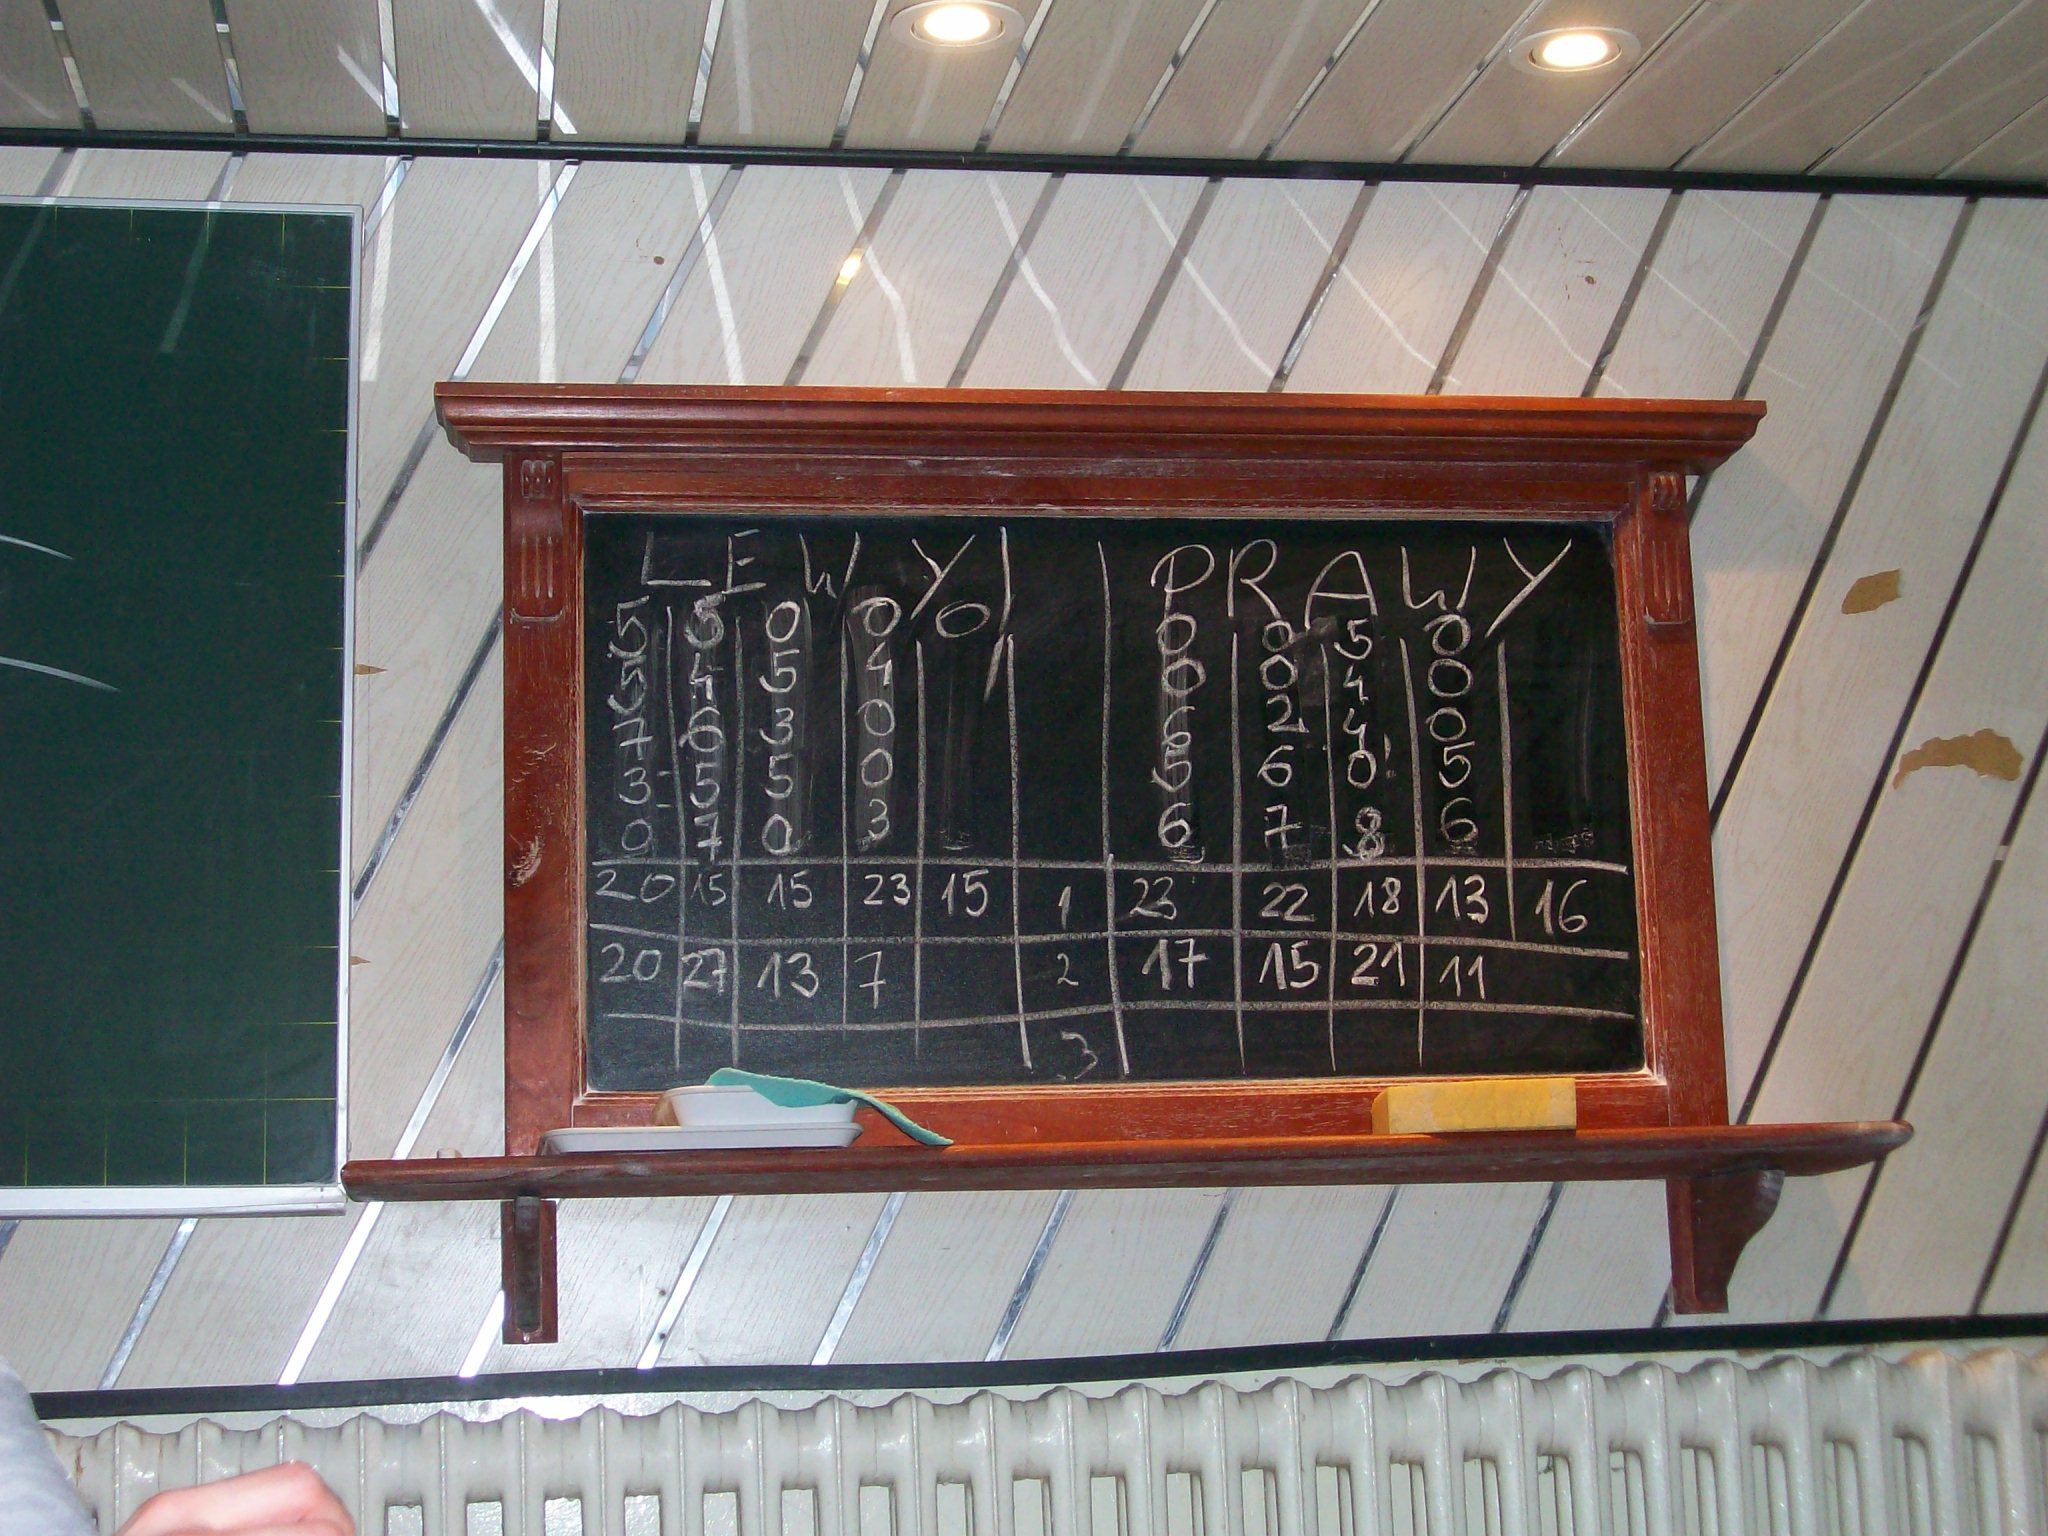 LEWY PRAWY
5 5 0 0 0 0 0 5 0
5 4 5 4 0 0 4 0
7 6 3 0 6 2 4 0
3 5 5 0 5 6 0 5
0 7 0 3 6 7 8 6
20 15 15 23 15 1 23 22 18 13 16
20 27 13 7 2 17 15 21 11
3